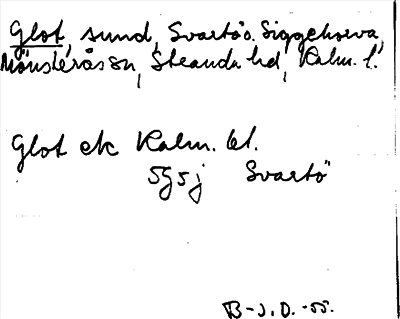 Glot, sund, Svartö o. Siggehorva,
Mönsterås sn, Stranda hd, Kalm. l.
Glot ek Kalm. bl.
5g5j Svartö
B-J. D. -55.